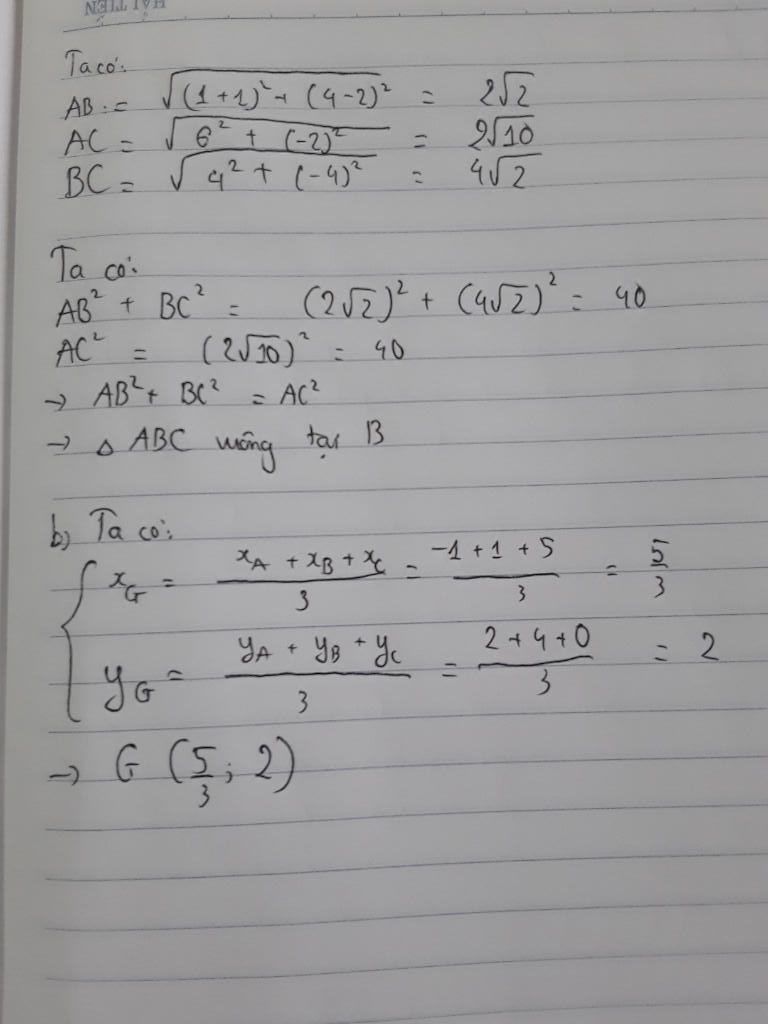 HẢI TIẾN
Ta có:
AB = √((1+1)² + (4-2)²) = 2√2
AC = √(6² + (-2)²) = 2√10
BC = √(4² + (-4)²) = 4√2
Ta có:
AB² + BC² = (2√2)² + (4√2)² = 40
AC² = (2√10)² = 40
→ AB² + BC² = AC²
→ △ ABC vuông tại B
b) Ta có:
{ x_G = (x_A + x_B + x_C)/3 = (-1 + 1 + 5)/3 = 5/3
y_G = (y_A + y_B + y_C)/3 = (2 + 4 + 0)/3 = 2
→ G (5/3; 2)